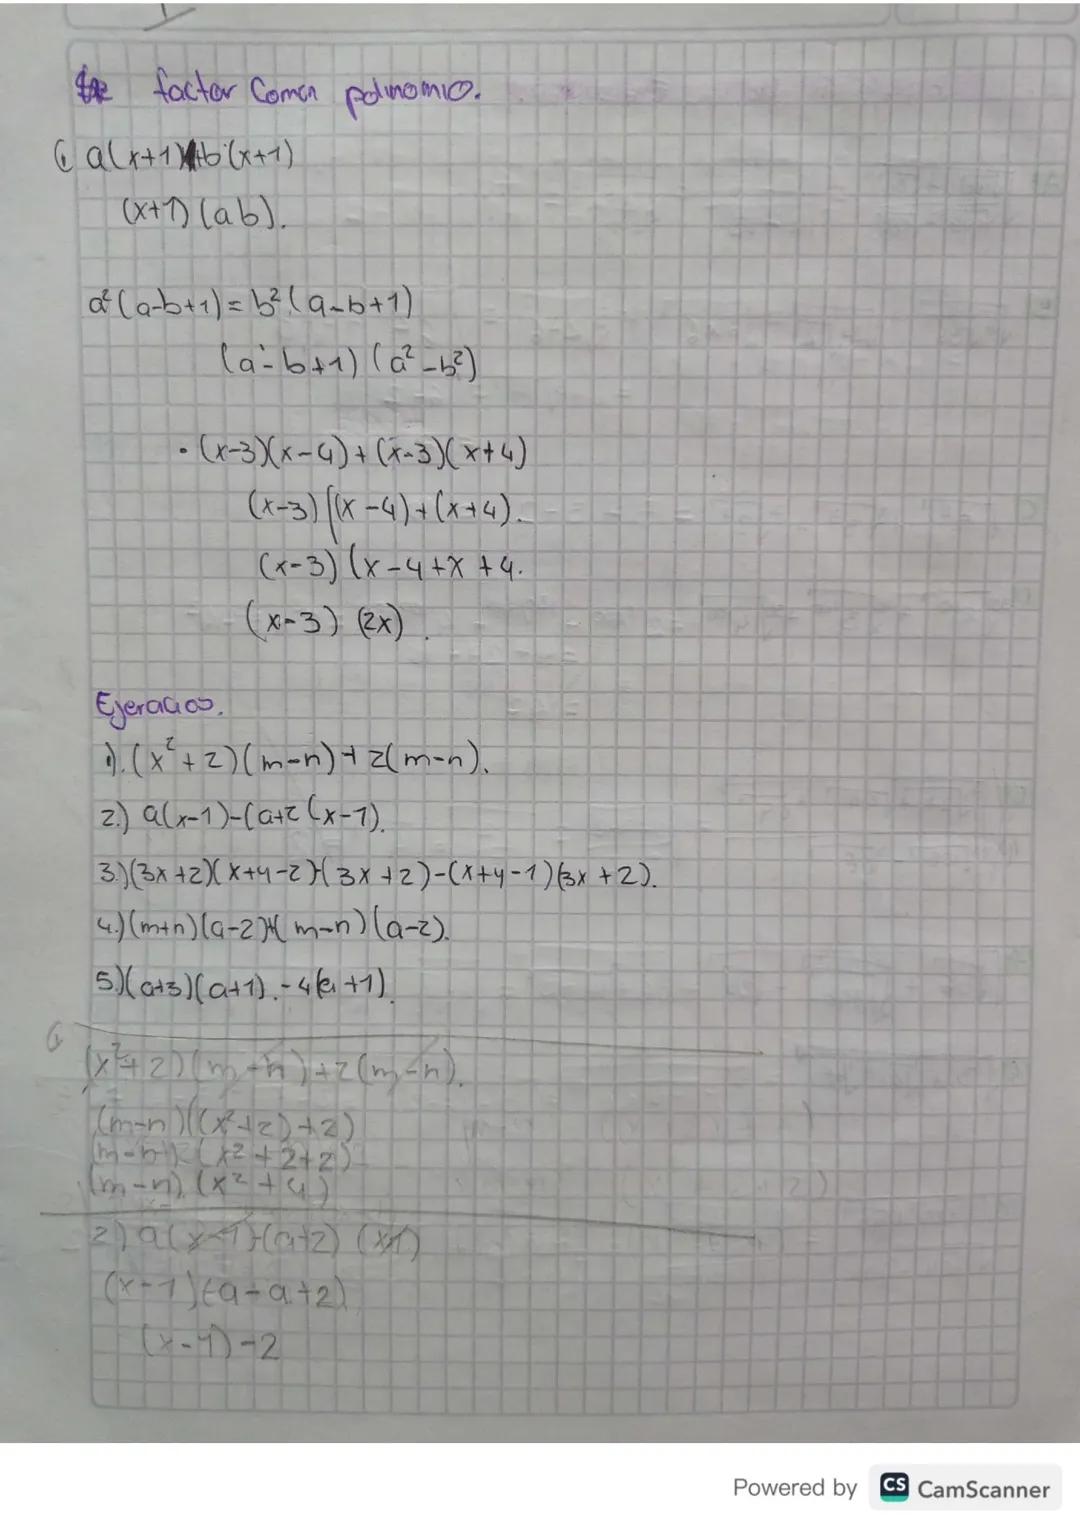 factor Comen polinomio.
a(x+1)+b(x+1)
(x+1)(ab).
a²(a-b+1)=b²(a-b+1)
(a-b+1)(a²-b²)
• (x-3)(x-4)+(x-3)(x+4)
(x-3)[(x-4)+(x+4).
(x-3)(x-4+x+4.
(x-3)(2x).
Ejercicios.
1).(x²+2)(m-n)+2(m-n).
2.) a(x-1)-(a+2(x-1).
3.)(3x+2)(x+y-2)-(3x+2)-(x+y-1)(3x+2).
4.)(m+n)(a-2)+(m-n)(a-2).
5.)(a+3)(a+1).-4(a+1).
(x²+2)(m-n)+2(m-n).
(m-n)((x²+2)+2)
(m-n)(x²+2+2)
(m-n).(x²+4)
2) a(x-1)-(a+2)(x-1)
(x-1)(a-a+2)
(x-1)-2
Powered by CS CamScanner